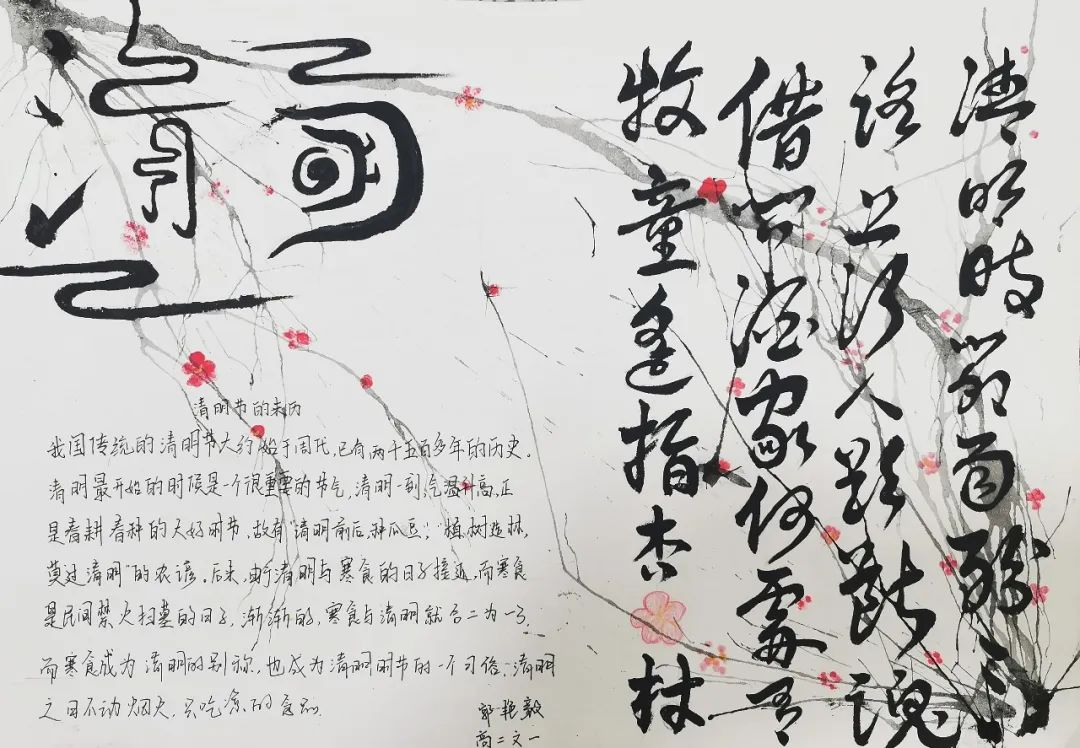 清明
清明時節雨紛紛
路上行人欲斷魂
借問酒家何處有
牧童遥指杏村
清明节的来历
我国传统的清明节大约始于周代,已有两千五百多年的历史。
清明最开始的时候是一个很重要的节气,清明一到,气温升高,正
是春耕春种的大好时节,故有“清明前后,种瓜豆;植树造林,
莫过清明”的农谚。后来,由于清明与寒食的日子接近,而寒食
是民间禁火扫墓的日子,渐渐的,寒食与清明就合二为一了
而寒食成为清明的别称,也成为清明时节的一个习俗,清明
之日不动烟火,只吃凉的食品。
郭艳毅
高二文一